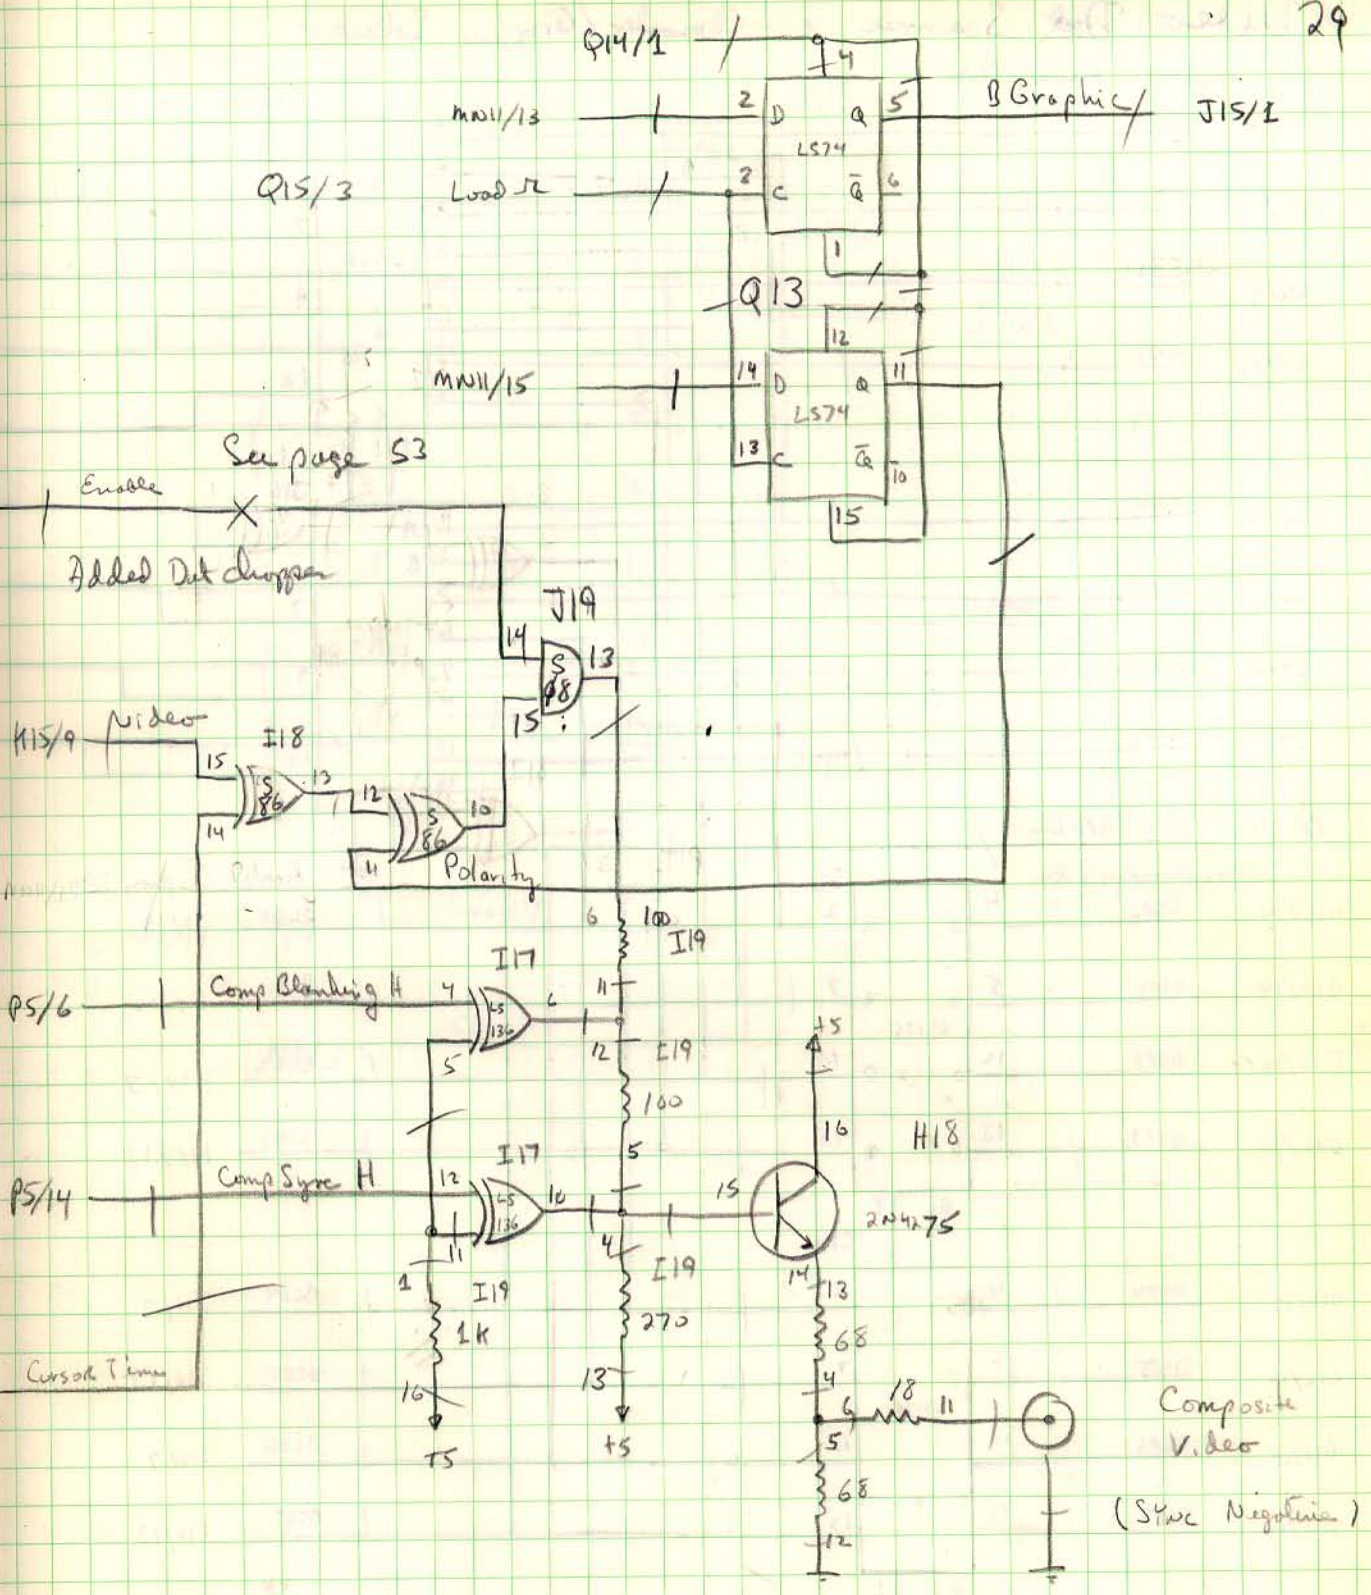 29
Q14/1
4
MN11/13
2
D
Q
5
B Graphic
J15/1
LS74
Q15/3
Load
3
C
Q
6
1
Q13
12
MN11/15
14
D
Q
11
LS74
13
C
Q
10
15
See page 53
Enable
Added Dot chopper
J19
14
S
08
13
15
K15/9
Video
I18
15
S
86
13
14
12
S
86
10
11
Polarity
6
100
I19
I17
11
P5/6
Comp Blanking H
4
LS
136
6
5
12
I19
100
+5
5
16
H18
I17
P5/14
Comp Sync H
12
LS
136
10
15
2N4275
11
4
I19
14
13
1
I19
1K
270
68
Cursor Time
16
13
4
6
18
11
Composite
Video
+5
+5
5
68
(Sync Negative)
12